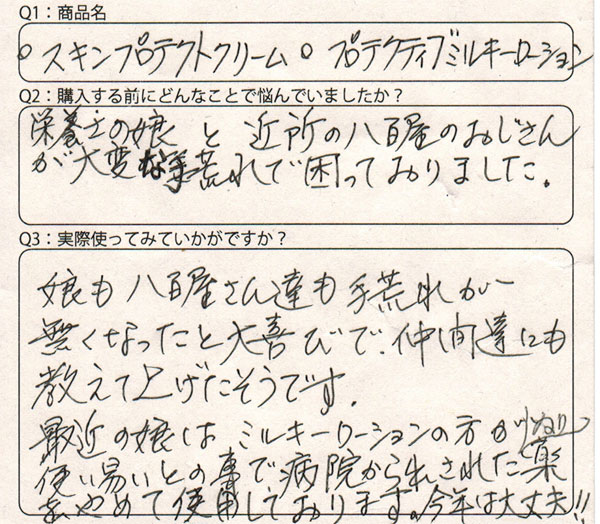 Q1：商品名
○ スキンプロテクトクリーム ○ プロテクティブミルキーローション
Q2：購入する前にどんなことで悩んでいましたか？
栄養士の娘 と 近所の八百屋のおじさん
が大変な手荒れで困っておりました.
Q3：実際使ってみていかがですか？
娘も八百屋さん達も手荒れが
無くなったと大喜びで.仲間達にも
教えて上げたそうです.
最近の娘はミルキーローションの方が
使い易いとの事で病院から出された薬
をやめて使用しております。今年は大丈夫!!